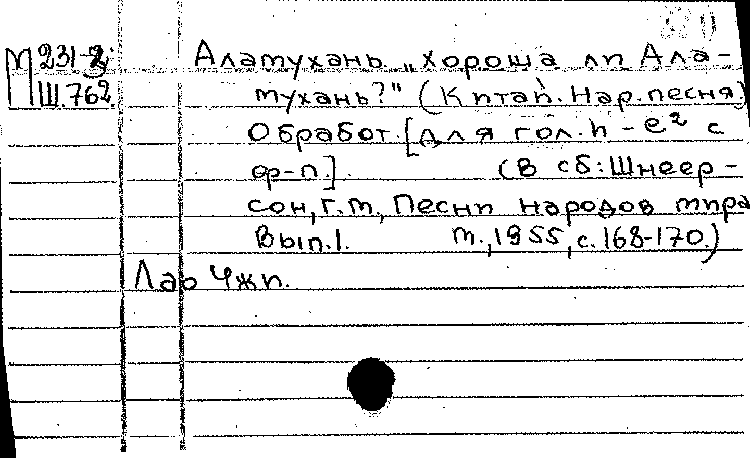 М 231-2
Ш.762.
Аламухань. „Хороша ли Ала-
мухань?" (Китай. Нар. песня)
Обработ. [для гол. h - e² с
ф-п.] (В сб: Шнеер-
сон, Г.М., Песни народов мира
Вып. 1. М., 1955, с. 168-170.)
Лао Чжи.